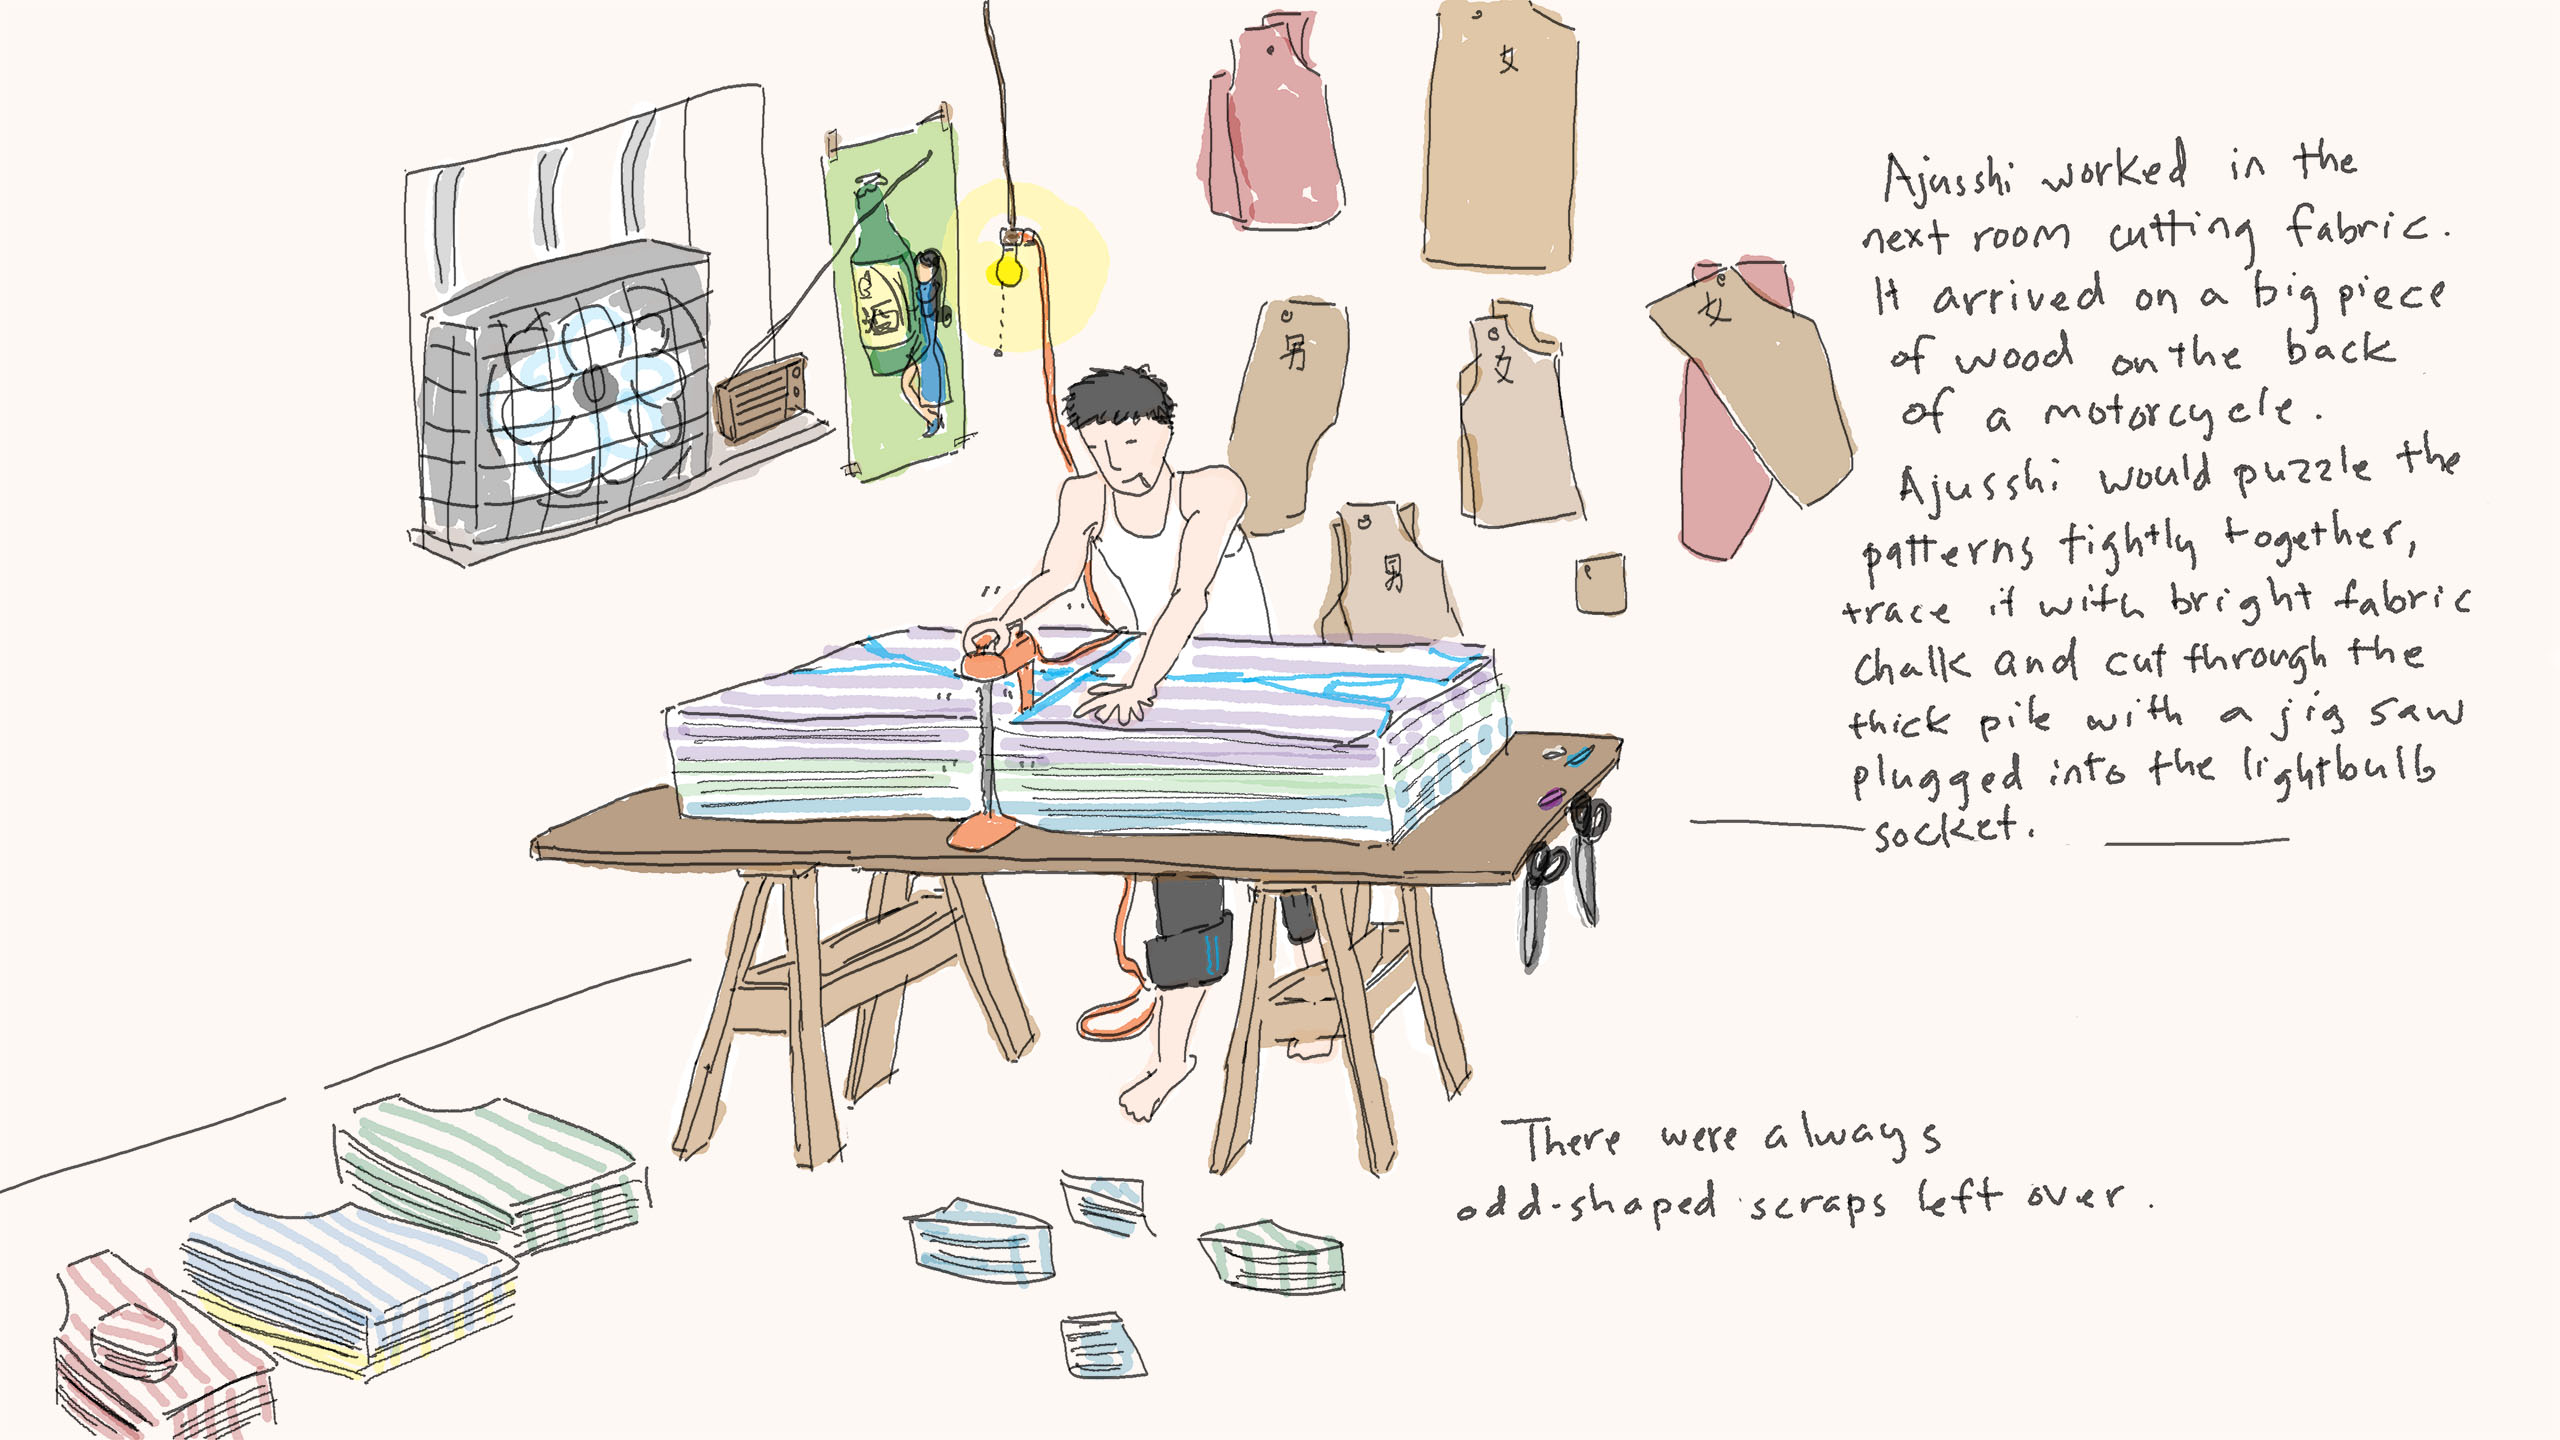 女
男
女
女
男
Ajusshi worked in the
next room cutting fabric.
It arrived on a big piece
of wood on the back
of a motorcycle.
Ajusshi would puzzle the
patterns tightly together,
trace it with bright fabric
chalk and cut through the
thick pile with a jig saw
plugged into the lightbulb
socket.
There were always
odd-shaped scraps left over.